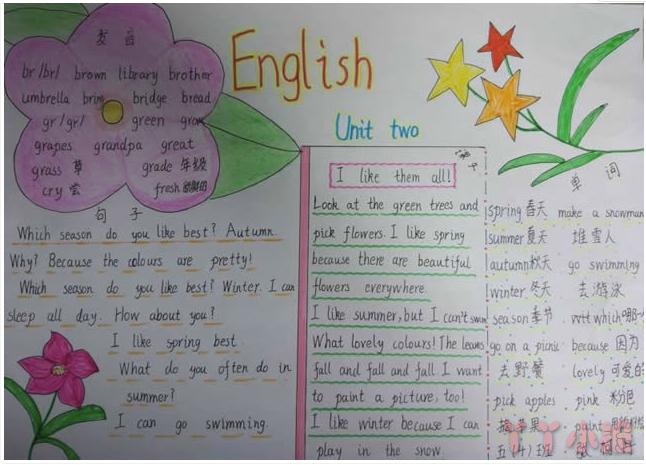 发音
br/br/ brown library brother
umbrella brim bridge bread
gr/gr/ green grow
grapes grandpa great
grass 草 grade 年级
cry 尝 fresh 新鲜的
English
Unit two
句子
Which season do you like best? Autumn.
Why? Because the colours are pretty!
Which season do you like best? Winter. I can
sleep all day. How about you?
I like spring best.
What do you often do in
summer?
I can go swimming.
I like them all!
Look at the green trees and
pick flowers. I like spring
because there are beautiful
flowers everywhere.
I like summer, but I can't swim
What lovely colours! The leaves
fall and fall and fall. I want
to paint a picture, too!
I like winter because I can
play in the snow.
单词
spring 春天 make a snowman
summer 夏天 堆雪人
autumn 秋天 go swimming
winter 冬天 去游泳
season 季节 which 哪一
go on a picnic because 因为
去野餐 lovely 可爱的
pick apples pink 粉色
摘苹果 paint
五(4)班
丫丫小